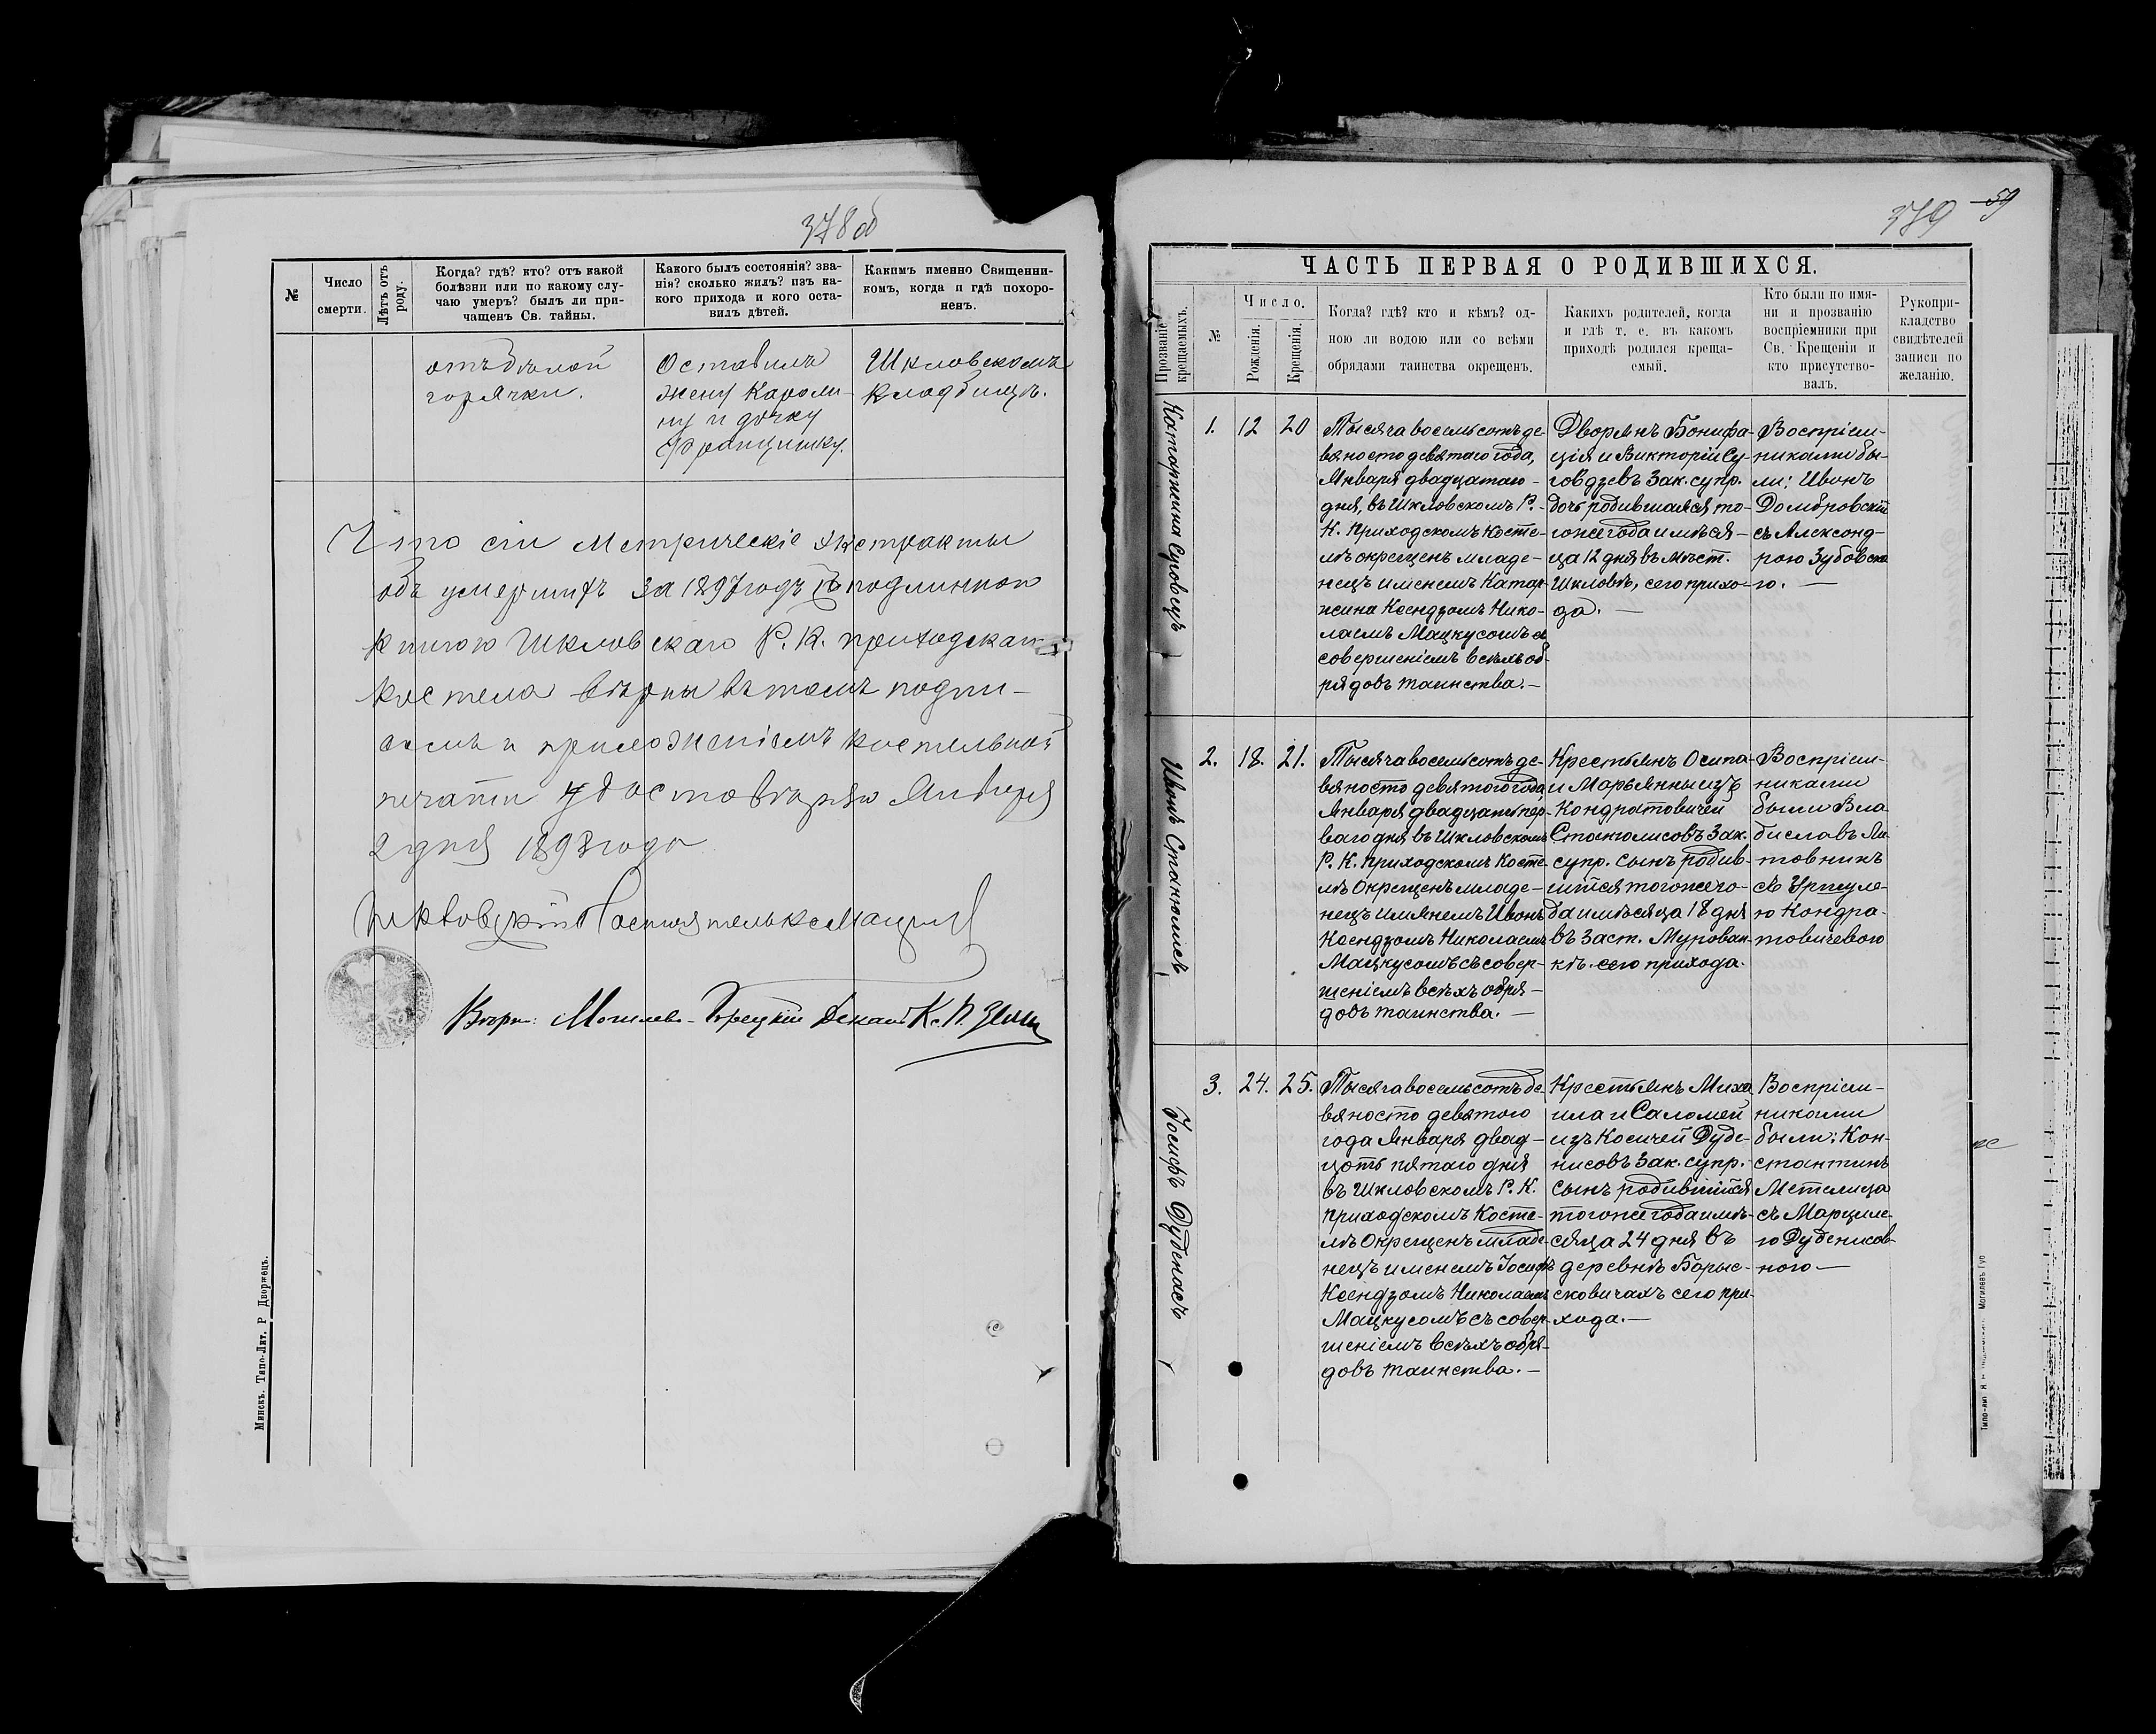 378 об
№
Число
смерти.
Лѣтъ отъ
роду.
Когда? гдѣ? кто? отъ какой
болѣзни или по какому слу-
чаю умеръ? былъ ли при-
чащенъ Св. тайны.
Какого былъ состоянія? зва-
нія? сколько жилъ? изъ ка-
кого прихода и кого оста-
вилъ дѣтей.
Какимъ именно Священни-
комъ, когда и гдѣ похоро-
ненъ.
горячки.
Оставилъ
жену Кароли-
ну и дочку
Францишку.
Шкловскомъ
кладбищѣ.
Что сіи Метрическіе экстракты
объ умершихъ за 1897 годъ съ подлинною
книгою Шкловскаго Р. К. приходскаго
костела вѣрны въ томъ подпи-
сомъ и приложеніемъ костельной
печати удостовѣряю Января
2 дня 1898 года
Шкловскій Настоятель
Вѣрн: Могилево-Горецкій Деканъ Кс. П.
Минскъ. Типо-Лит. Р Дворжецъ.
379 59
ЧАСТЬ ПЕРВАЯ О РОДИВШИХСЯ.
Прозваніе
крещаемыхъ.
№
Число.
Рожденія.
Крещенія.
Когда? гдѣ? кто и кѣмъ? од-
ною ли водою или со всѣми
обрядами таинства окрещенъ.
Какихъ родителей, когда
и гдѣ т. е. въ какомъ
приходѣ родился креща-
емый.
Кто были по имя-
ни и прозванію
воспріемники при
Св. Крещеніи и
кто присутство-
валъ.
Рукопри-
кладство
свидѣтелей
записи по
желанію.
Катаржина
1. 12 20
Тысяча восемьсотъ де-
вяносто девятаго года,
Января двадцатаго -
дня, въ Шкловскомъ Р.-
К. Приходскомъ Косте-
лѣ окрещенъ младе-
нецъ именемъ Катар-
жина Ксендзомъ Нико-
лаемъ Мацкусомъ съ
совершеніемъ всѣхъ об-
рядовъ таинства.-
Дворянъ Бонифа-
ція и Викторіи Су-
говдзевъ зак. супр.
дочь родившаяся то-
гоже года и мѣся-
ца 12 дня въ мѣст.
Шкловѣ, сего прихо-
да. -
Воспріем-
никами бы-
ли: Иванъ
Домбровскій
съ Александ-
рою Зубовско-
ю. -
Иванъ Станюлисъ
2. 18. 21.
Тысяча восемьсотъ де-
вяносто девятого года
Января двадцать пер-
ваго дня въ Шкловскомъ
Р. К. Приходскомъ Косте-
лѣ Окрещенъ младе-
нецъ имянемъ Иванъ
Ксендзомъ Николаемъ
Мацкусомъ съ совер-
шеніемъ всѣхъ обря-
довъ таинства. -
Крестьянъ Осипа
и Марьянны изъ
Кондратовичей
Станюлисовъ Зак.
супр. сынъ родив-
шійся тогоже го-
да и мѣсяца 18 дня
въ заст. Мурован-
кѣ. сего прихода.
Воспріем-
никами
были Вла-
диславъ Ли-
товникъ
съ Уршуле-
ю Кондра-
товичевою
Іосифъ Дуденасъ
3. 24. 25.
Тысяча восемьсотъ де-
вяносто девятого
года Января двад-
цать пятаго дня
въ Шкловскомъ Р. К.
Приходскомъ Косте-
лѣ Окрещенъ младе-
нецъ именемъ Іосифъ
Ксендзомъ Николаемъ
Мацкусомъ съ совер-
шеніемъ всѣхъ обря-
довъ таинства. -
Крестьянъ Миха
ила и Саломеи
изъ Косичей Дуде-
нисовъ Зак. супр.
сынъ родившійся
тогоже года и мѣ-
сяца 24 дня въ
деревнѣ Борыс-
ковичахъ сего при-
хода. -
Воспріем-
никами
были: Кон-
стантинъ
Метелица
съ Марциле-
ю Дуденисов-
ною -